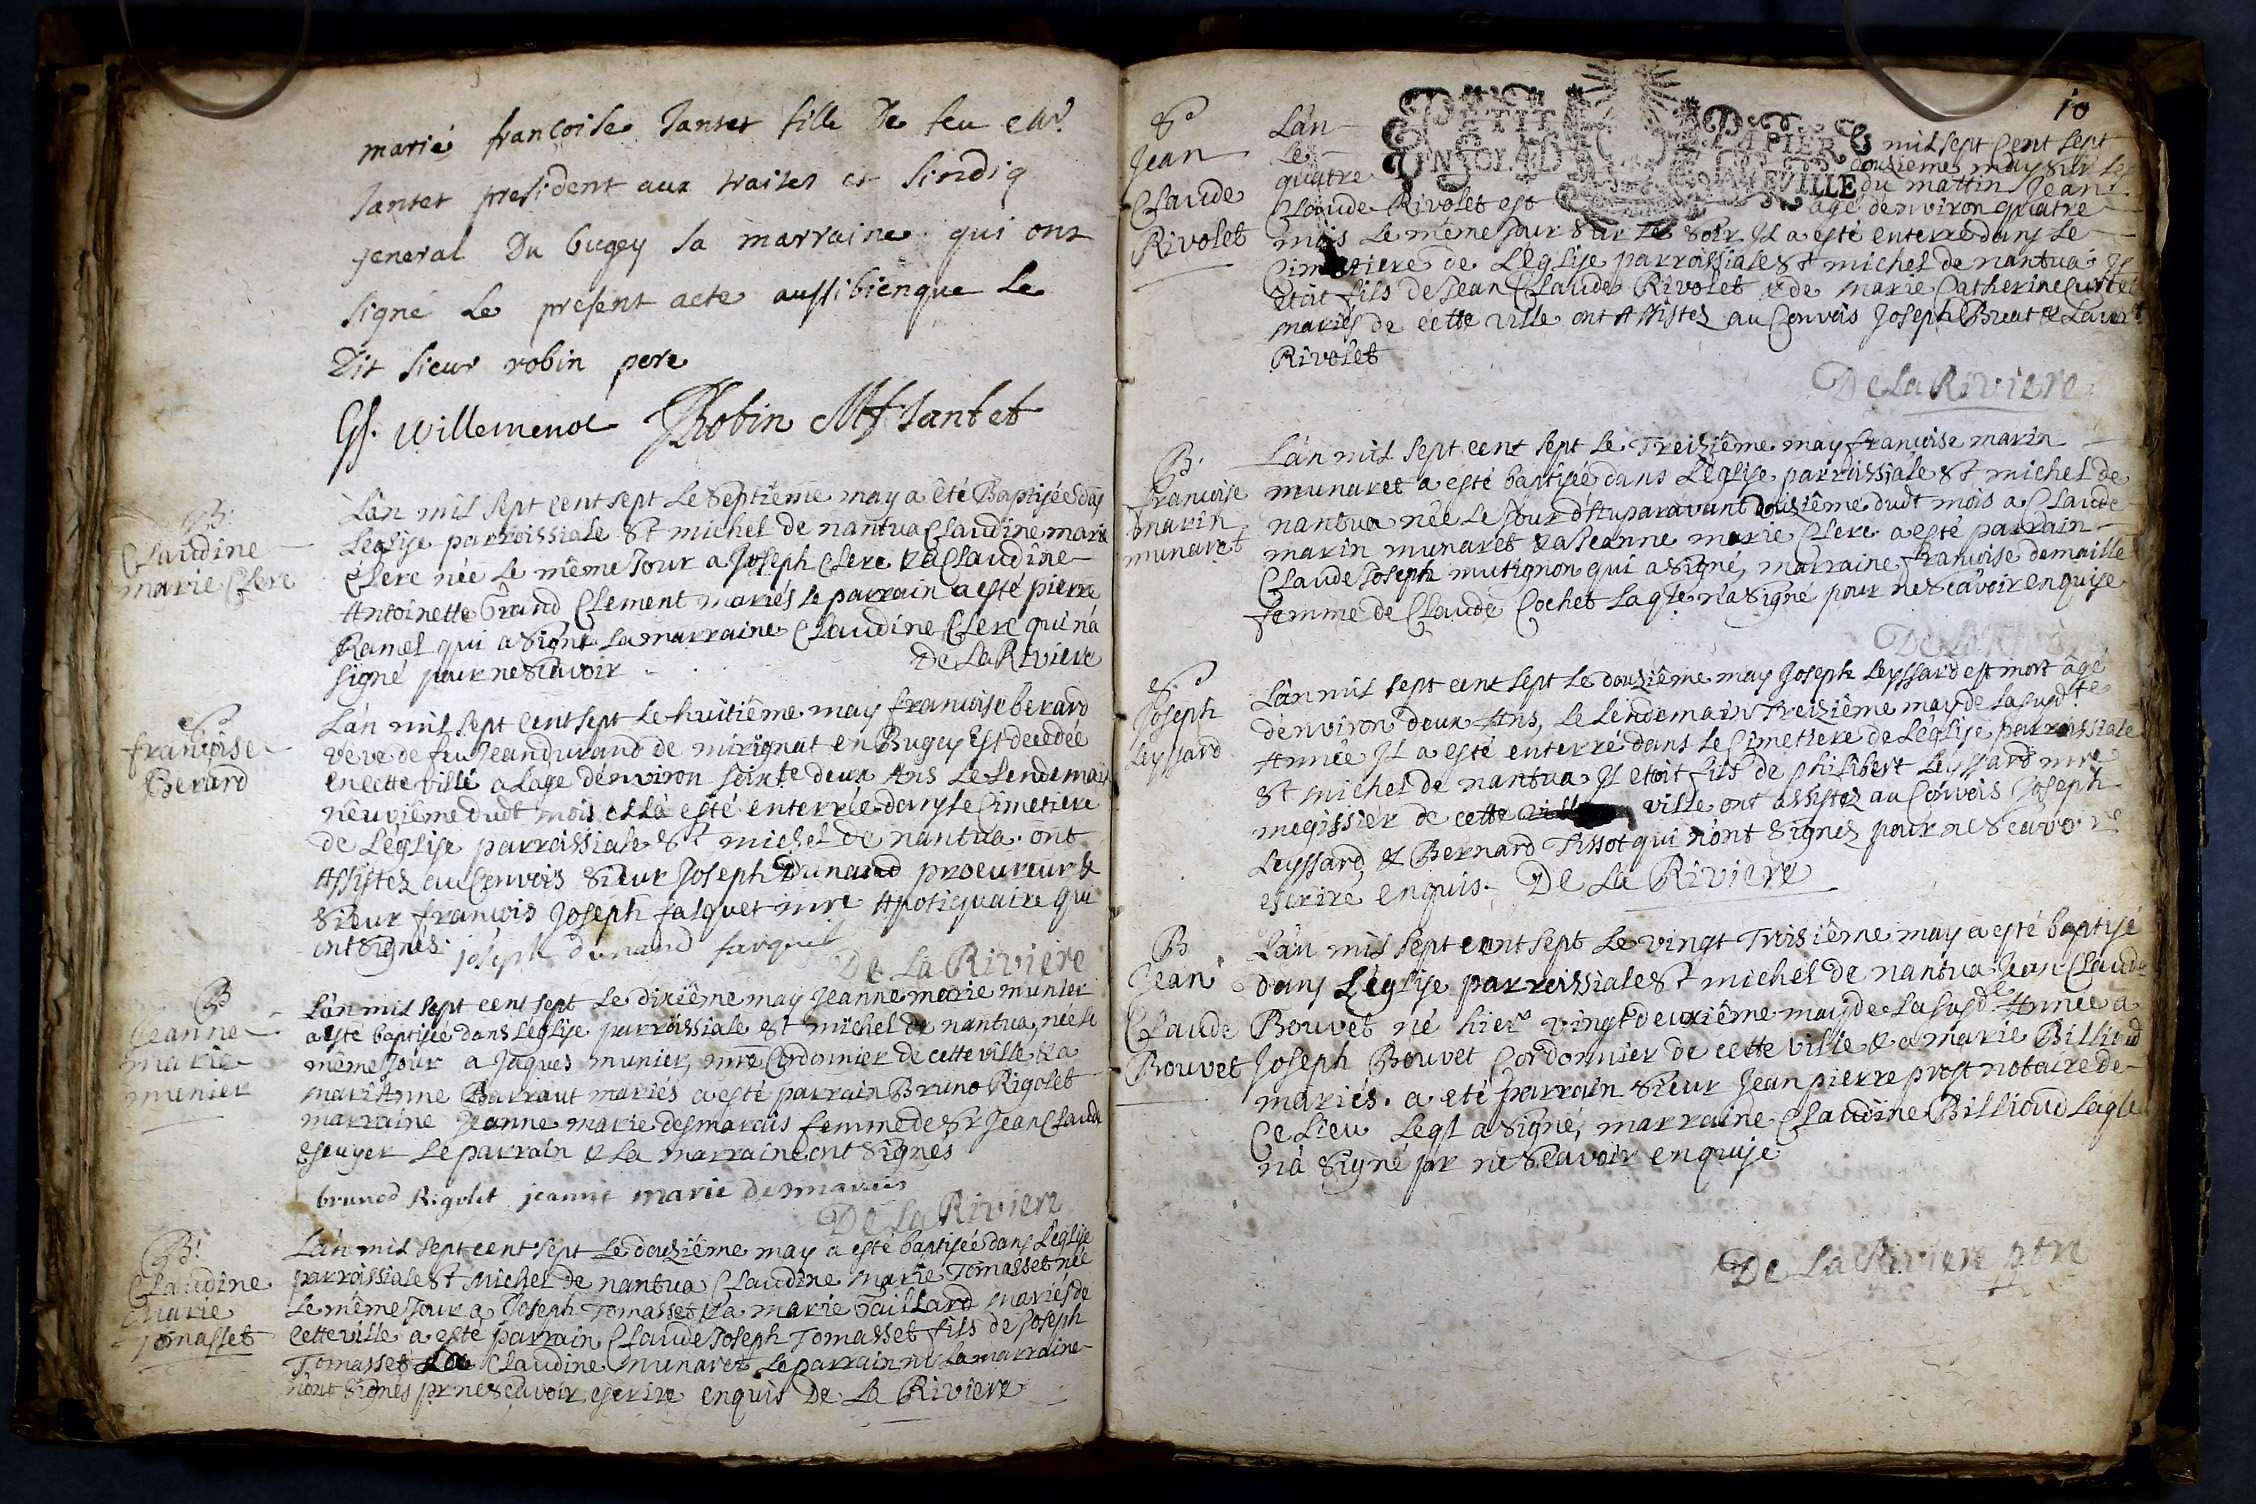 marie francoise Jantet fille De feu Mr.
Jantet president aux traites et sindiq
jeneral Du bugey sa marraine qui ont
signé Le present acte aussi bien que Le
Dit sieur robin pere
Gf. willemenot Robin Mf Jantet
B.
Claudine
marie Clere
L'an mil sept cent sept Le septieme may a été Baptisée dās
L'eglise parroissiale St michel de nantua Claudine marie
Clere née Le même Jour a Joseph Clere & a Claudine
Antoinette Grand Clement mariés Le parrain a esté pierre
Ramel qui a signé La marraine Claudine Clere qui n'a
signé pour ne Scavoir De La Riviere
Sp
francoise
Berard
L'an mil sept Cent sept Le huitiême may francoise berard
veve de feu Jean durand de mirignat en Bugey Est decedée
en cette ville a l'age d'environ soix.te deux Ans Le Lendemain
neuviême dudt mois ella esté enterrée dans Le Cimetiere
de L'église parroissiale St michel de nantua. ont
Assistez au Convois Sieur Joseph Dunand procureur &
Sieur francois Joseph fasquet mre Apotiquaire qui
ont signés. joseph dunand farquet
De La Riviere
B
Jeanne
marie
munier
L'an mil sept cent sept Le dixiême may Jeanne marie munier
a esté baptisée dans L'eglise parroissiale St michel de nantua, née le
même Jour a Jaques munier, mre Cordonnier de cette ville & a
mari Anne Barraut mariés a esté parrain Bruno Rigolet
marraine Jeanne marie desmarais femme de Sr Jean Claude
escuyer Le parrain & La marraine ont signés
bruned Rigolet jeanne marie desmarais
De La Riviere
B.
Claudine
marie
Tomasset
L'an mil sept cent sept Le douziême may a esté baptisée dans L'eglise
parroissiale St Michel de nantua Claudine Marie Tomasset née
Le même Jour a Joseph Tomasset & a marie Gaillard mariés de
Cette ville a esté parrain Claude Joseph Tomasset fils de Joseph
Tomasset Claudine munaret Le parrain ni La marraine
n'ont signés pr ne scavoir escrire enquis De La Riviere
10
PETIT PAPIER
UN SOL
Sp
Jean
Claude
Rivolet
L'an mil sept Cent sept
Le douzieme may sur Les
quatre du mattin Jean
Claude Rivolet est agé denviron quatre
mois Le même Jour sur Le Soir Jl a esté enterré dans Le
Cimetiere de L'église parroissiale St michel de nantua Jl
étoit fils de Jean Claude Rivolet & de marie Catherine Curtet
mariés de cette ville ont Assistez au Convois Joseph Breat & Laur.t
Rivolet
De La Riviere
B.
francoise
marin
munaret
L'an mil sept cent sept Le Treiziême may francoise marin
munaret a esté baptisée dans L'église parroissiale St michel de
nantua née Le Jour d'Auparavant douziême dudt mois a Claude
marin munaret & a Jeanne marie Clere a esté parrain
Claude Joseph mutignon qui a signé, marraine francoise demaille
femme de Claude Cochet Laqle n'a signé pour ne Scavoir enquise
De La Riviere
Sp
Joseph
Leyssard
L'an mil sept cent sept Le douziême may Joseph Leyssard est mort agé
denviron deux Ans, Le Lendemain Treiziême may de La susd.te
Année Jl a esté enterré dans Le Cimetiere de L'église parroissiale
St michel de nantua, Jl ettoit fils de philibert Leyssard mre
megissier de cette ville ont assistez au Convois Joseph
Leyssard & Bernard Tissot qui n'ont signez pour ne Scavoir
escrire enquis. De La Riviere
B
Jean
Claude
Bouvet
L'an mil sept cent sept Le vingt Troisiême may a esté baptisé
dans L'église parroissiale St michel de nantua Jean Claude
Bouvet né hier vingt deuxiême may de La susd.e Année a
Joseph Bouvet Cordonnier de cette ville & a marie Billioud
mariés. a eté parrain Sieur Jean pierre prost notaire de
Ce Lieu Leql a signé, marraine Claudine Billioud Laqle
n'a signé pr ne Scavoir enquise
De La Riviere ptre